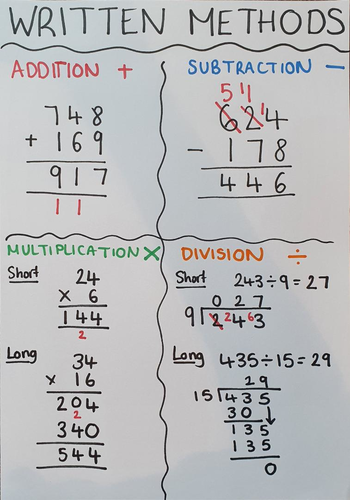 WRITTEN METHODS
ADDITION +
748
+ 169
917
11
SUBTRACTION −
5 11 1
624
− 178
446
MULTIPLICATION ×
Short
24
× 6
144
2
Long
34
× 16
204
2
340
544
DIVISION ÷
Short 243÷9=27
027
9 2 2 4 6 3
Long 435÷15=29
29
15 435
30↓
135
135
0